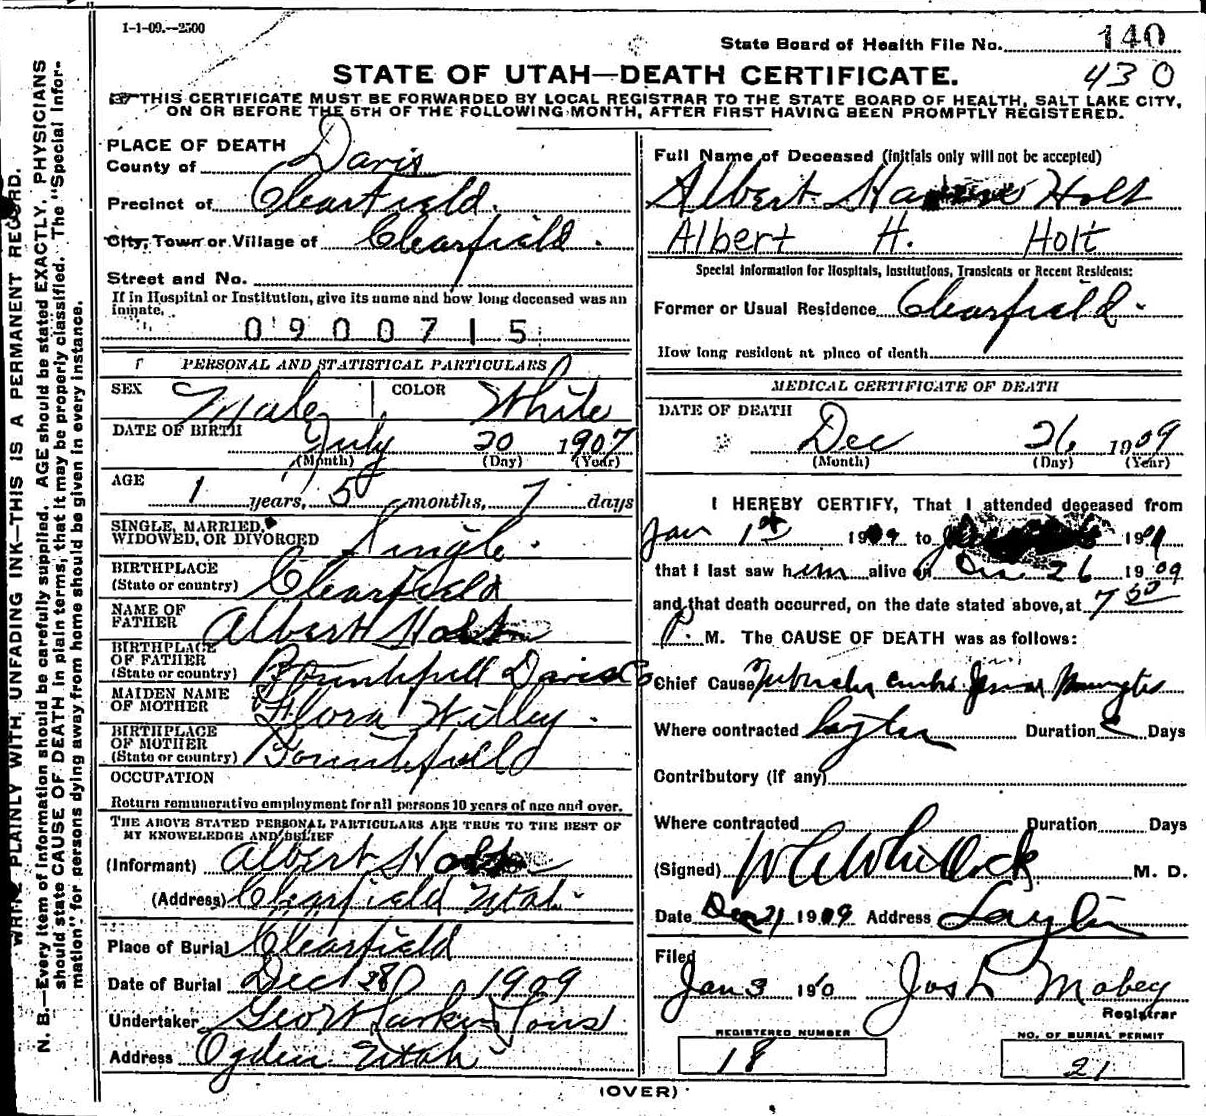 1-1-09.--2500
State Board of Health File No. 140
430
STATE OF UTAH—DEATH CERTIFICATE.
THIS CERTIFICATE MUST BE FORWARDED BY LOCAL REGISTRAR TO THE STATE BOARD OF HEALTH, SALT LAKE CITY,
ON OR BEFORE THE 5TH OF THE FOLLOWING MONTH, AFTER FIRST HAVING BEEN PROMPTLY REGISTERED.
WRITE PLAINLY WITH UNFADING INK—THIS IS A PERMANENT RECORD.
N. B.—Every item of information should be carefully supplied. AGE should be stated EXACTLY. PHYSICIANS
should state CAUSE OF DEATH in plain terms, that it may be properly classified. The "Special Infor-
mation" for persons dying away from home should be given in every instance.
PLACE OF DEATH
County of Davis
Precinct of Clearfield.
City, Town or Village of Clearfield.
Street and No.
If in Hospital or Institution, give its name and how long deceased was an
inmate.
0900715
PERSONAL AND STATISTICAL PARTICULARS
SEX Male COLOR White
DATE OF BIRTH July 20 1907
(Month) (Day) (Year)
AGE
1 years, 5 months, 7 days
SINGLE, MARRIED,
WIDOWED, OR DIVORCED Single.
BIRTHPLACE
(State or country) Clearfield
NAME OF
FATHER Albert Holt
BIRTHPLACE
OF FATHER
(State or country) Bountifull Davis Co
MAIDEN NAME
OF MOTHER Flora Willey.
BIRTHPLACE
OF MOTHER
(State or country)
OCCUPATION
Return remunerative employment for all persons 10 years of age and over.
THE ABOVE STATED PERSONAL PARTICULARS ARE TRUE TO THE BEST OF
MY KNOWLEDGE AND BELIEF
(Informant) Albert Holt
(Address) Clearfield Utah.
Place of Burial Clearfield
Date of Burial Dec 28 1909
Undertaker Geo W Larkin & Sons
Address Ogden Utah
Full Name of Deceased (initials only will not be accepted)
Albert Holt
Albert H. Holt
Special Information for Hospitals, Institutions, Transients or Recent Residents:
Former or Usual Residence Clearfield.
How long resident at place of death
MEDICAL CERTIFICATE OF DEATH
DATE OF DEATH Dec 26 1909
(Month) (Day) (Year)
I HEREBY CERTIFY, That I attended deceased from
Jan 1st 1909 to 190
that I last saw him alive on Dec 26 1909
and that death occurred, on the date stated above, at 7 30
P. M. The CAUSE OF DEATH was as follows:
Chief Cause
Where contracted Layton Duration Days
Contributory (if any)
Where contracted Duration Days
(Signed) Whitlock M. D.
Date Dec 1909 Address Layton
Filed
Jan 3 190 Jos L Mabey
Registrar
REGISTERED NUMBER
18
NO. OF BURIAL PERMIT
21
(OVER)